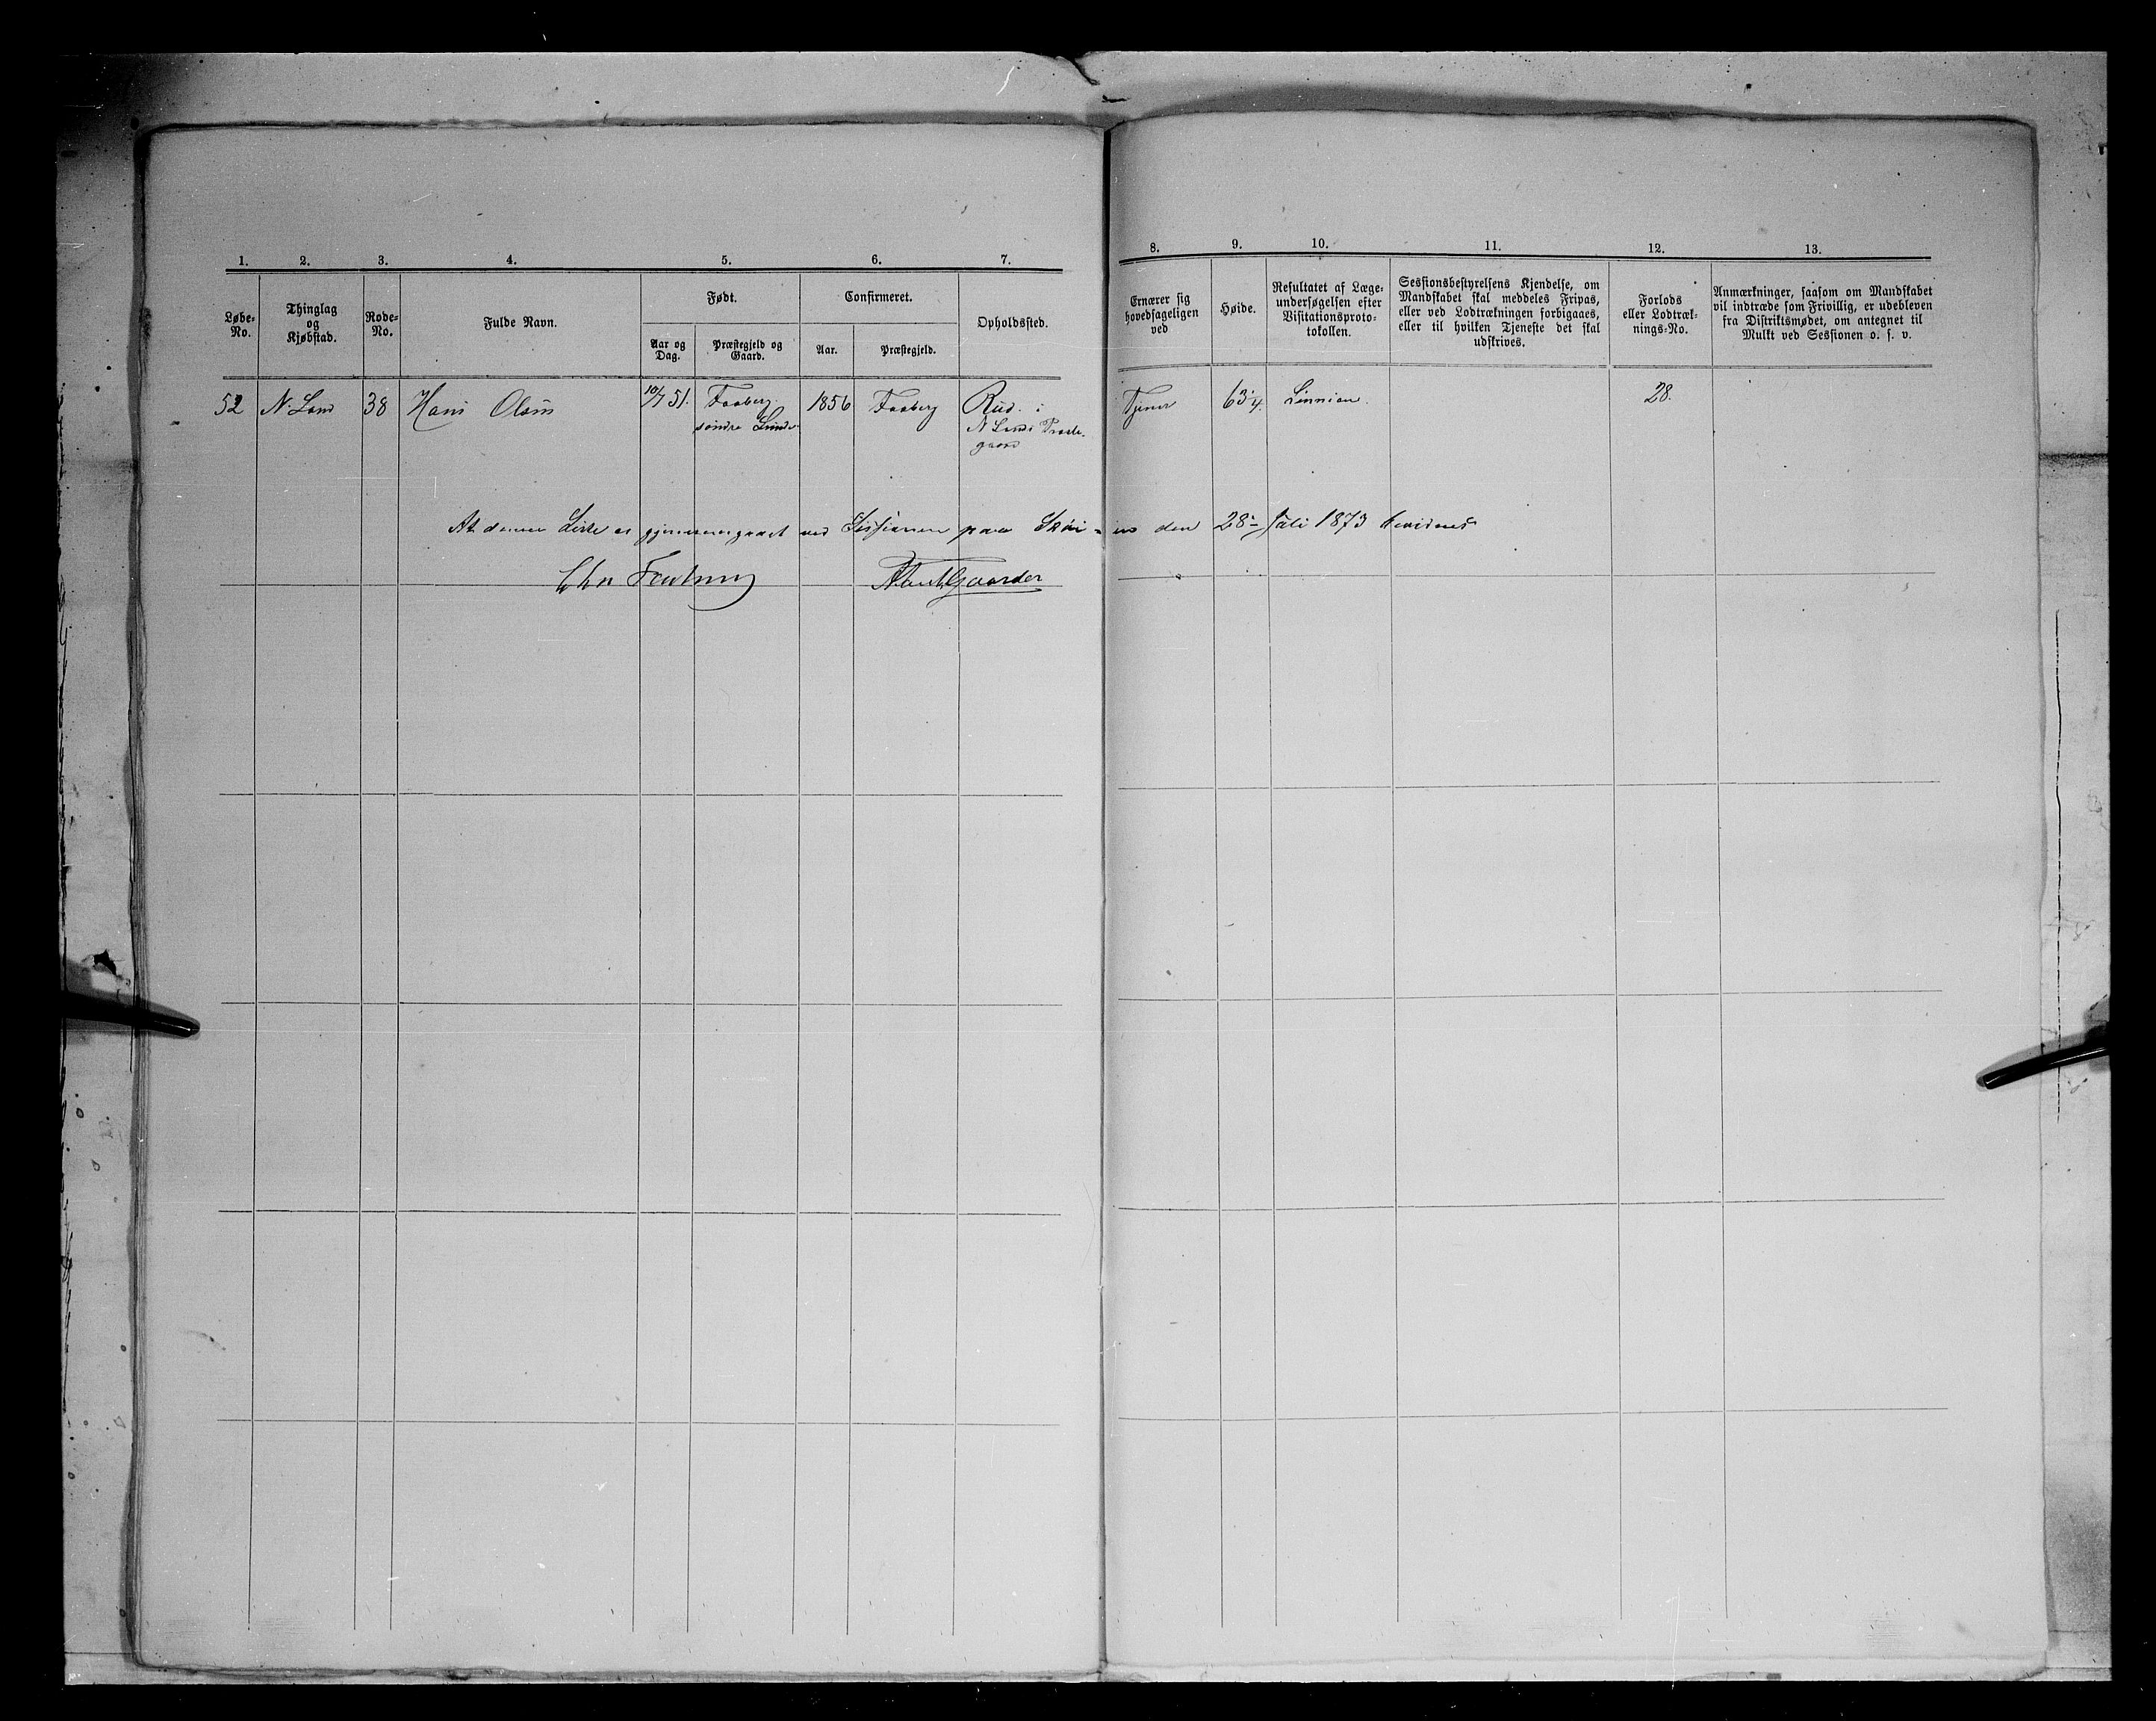 1. 2. 3. 4. 5. 6. 7. 8. 9. 10. 11. 12. 13.
Løbe-
No.
Thinglag
og
Kjøbstad.
Rode-
No.
Fulde Navn.
Født.
Aar og
Dag.
Præstegjeld og
Gaard.
Confirmeret.
Aar.
Præstegjeld.
Opholdssted.
Ernærer sig
hovedsageligen
ved
Høide.
Resultatet af Læge-
undersøgelsen efter
Visitationsproto-
tokollen.
Sessionsbestyrelsens Kjendelse, om
Mandskabet skal meddeles Fripas,
eller ved Lodtrækningen forbigaaes,
eller til hvilken Tjeneste det skal
udskrives.
Forlods
eller Lodtræk-
nings-No.
Anmærkninger, saasom om Mandskabet
vil indtræde som Frivillig, er udebleven
fra Distriktsmødet, om antegnet til
Mulkt ved Sessionen o. s. v.
52 N Land 38 Hans Olsen 10/7 51. Faaberg 1856 Faaberg Rud i Tjener 63 1/4. Linnien. 28.
søndre Lunde N Lands Præste-
gaard
At denne Liste er gjennemgaaet ved Sessionen paa den 28- Juli 1873 bevidnes
Gaarder